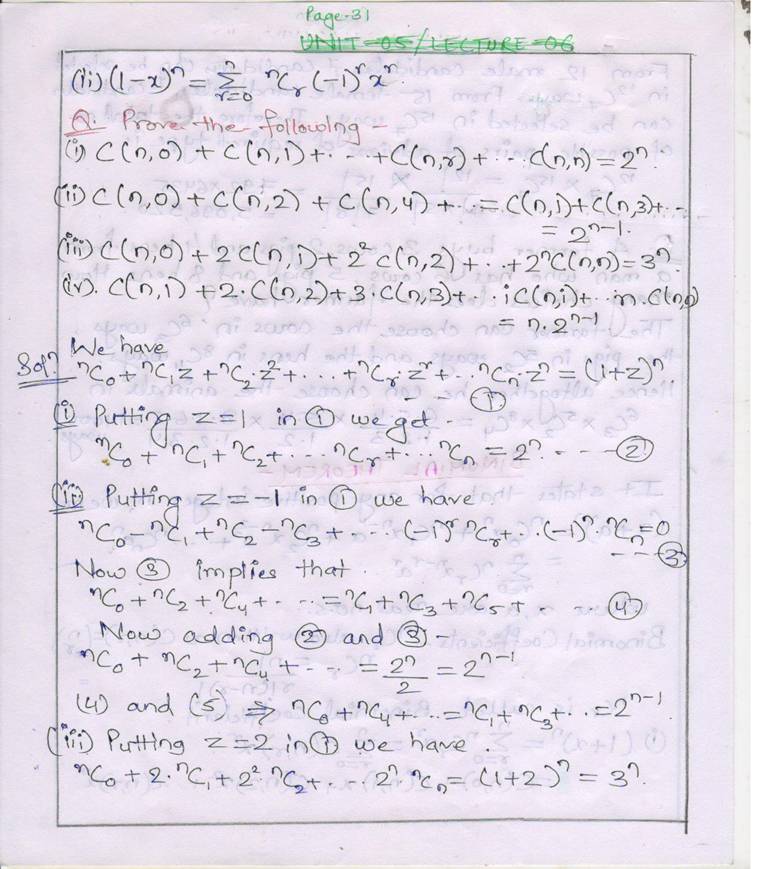 Page-31
UNIT-05/LECTURE-06
(ii) (1-x)ⁿ = Σ_{r=0}^{n} ⁿCᵣ (-1)ʳ xʳ
Q. Prove the following -
(i) C(n,0) + C(n,1) + ... + C(n,r) + ... C(n,n) = 2ⁿ.
(ii) C(n,0) + C(n,2) + C(n,4) + .. = C(n,1) + C(n,3) + ..
= 2ⁿ⁻¹.
(iii) C(n,0) + 2C(n,1) + 2²C(n,2) + .. + 2ⁿC(n,n) = 3ⁿ.
(iv). C(n,1) + 2·C(n,2) + 3·C(n,3) + .. iC(n,i) + .. n·C(n,n)
= n·2ⁿ⁻¹
Solⁿ. We have
ⁿC₀ + ⁿC₁z + ⁿC₂·z² + ... + ⁿCᵣ·zʳ + ... ⁿCₙ·zⁿ = (1+z)ⁿ
①
(i) Putting z=1 in ① we get -
ⁿC₀ + ⁿC₁ + ⁿC₂ + ... ⁿCᵣ + ... ⁿCₙ = 2ⁿ. ---- ②
(ii) Putting z=-1 in ① we have.
ⁿC₀ - ⁿC₁ + ⁿC₂ - ⁿC₃ + ... (-1)ʳ ⁿCᵣ + .. (-1)ⁿ·ⁿCₙ = 0
--- ③
Now ③ implies that.
ⁿC₀ + ⁿC₂ + ⁿC₄ + ... = ⁿC₁ + ⁿC₃ + ⁿC₅ + . .. ④
Now adding ② and ③ -
ⁿC₀ + ⁿC₂ + ⁿC₄ + ... = 2ⁿ/2 = 2ⁿ⁻¹
(4) and (5) ⇒ ⁿC₀ + ⁿC₄ + .. = ⁿC₁ + ⁿC₃ + .. = 2ⁿ⁻¹.
(iii) Putting z=2 in ① we have.
ⁿC₀ + 2·ⁿC₁ + 2²·ⁿC₂ + ... 2ⁿ·ⁿCₙ = (1+2)ⁿ = 3ⁿ.